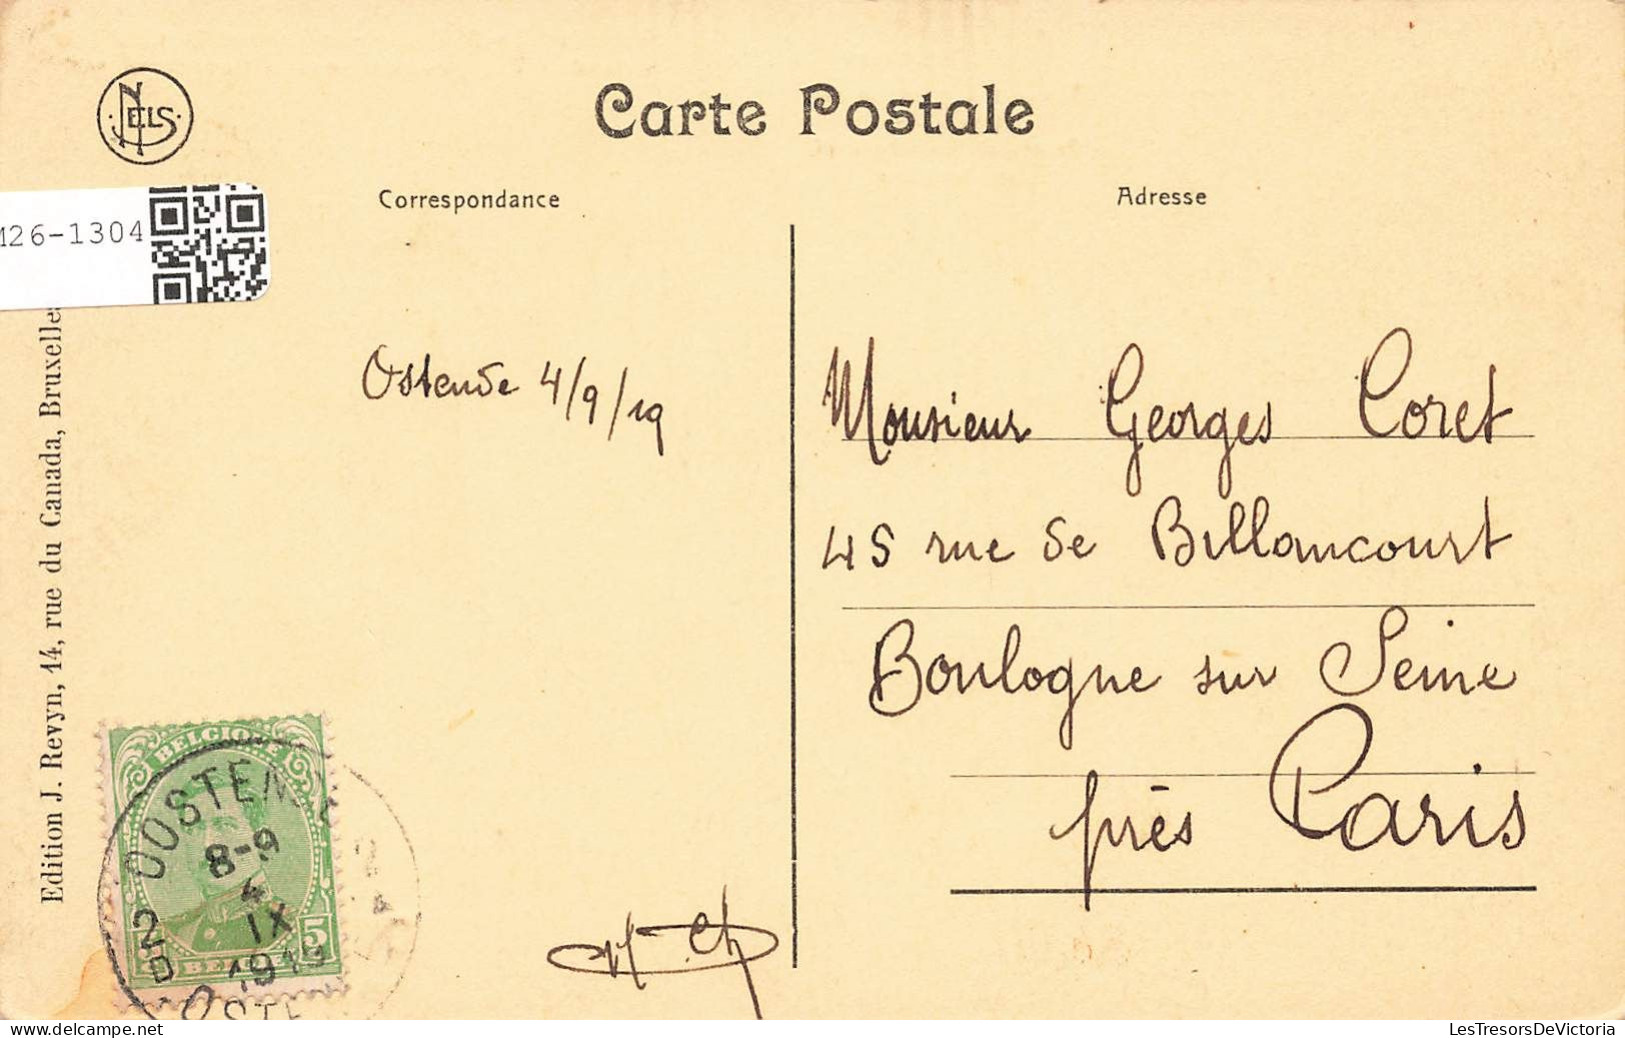 NELS
Carte Postale
Correspondance
Adresse
M26-1304
Edition J. Revyn, 44, rue du Canada, Bruxelles
Ostende 4/9/19
Monsieur Georges Coret
45 rue de Billancourt
Boulogne sur Seine
près Paris
BELGIQUE
5
BELGIE
OOSTENDE
8-9
4
IX
1919
2
D
OSTE
LesTresorsDeVictoria
www.delcampe.net